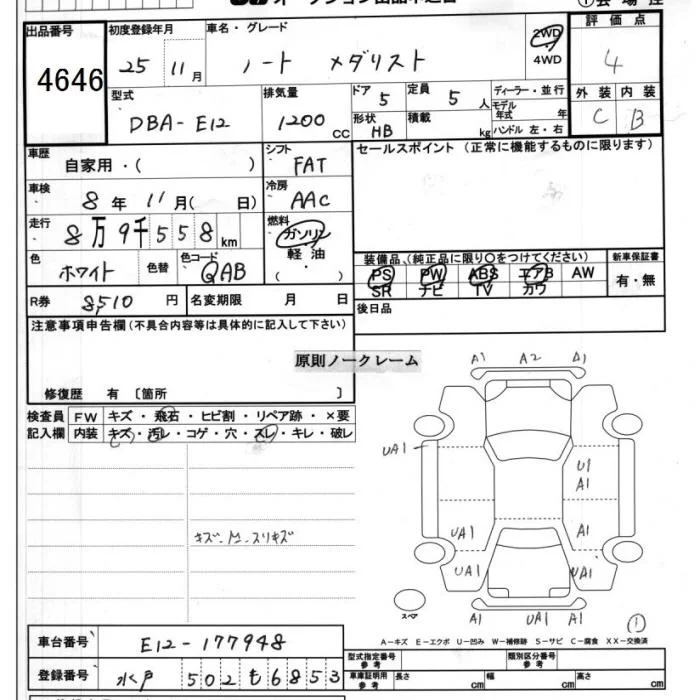 オークション出品申込書
①会場控
出品番号 初度登録年月 車名・グレード 評価点
4646 25 11月 ノート メダリスト 2WD 4WD 4
型式 排気量 ドア 定員 ディーラー・並行 外装 内装
DBA-E12 1200cc 5 5人 モデル年式 年 C B
形状 HB 積載 kg ハンドル 左・右
車歴 自家用・( ) シフト FAT セールスポイント (正常に機能するものに限ります)
車検 8年11月( 日) 冷房 AAC
走行 8万9千558km 燃料 ガソリン 軽油 ( )
色 ホワイト 色替 色コード QAB
装備品(純正品に限り○をつけてください) 新車保証書
PS PW ABS エアB AW 有・無
SR ナビ TV カワ
R券 8,510円 名変期限 月 日 後日品
注意事項申告欄(不具合内容等は具体的に記入して下さい)
原則ノークレーム
修復歴 有 〔箇所 〕
検査員 FW キズ・飛石・ヒビ割・リペア跡・×要
記入欄 内装 キズ・汚レ・コゲ・穴・スレ・キレ・破レ
A1 A2 A1
UA1
U1
A1
キズ.M.スリキズ
UA1 A1
UA1 UA1
スペア
A1 UA1 A1
①
A-キズ E-エクボ U-凹み W-補修跡 S-サビ C-腐食 XX-交換済
車台番号 E12-177948
型式指定番号 参考 類別区分番号 参考
登録番号 水戸 502 も 6853
車庫証明用 参考 長さ cm 幅 cm 高さ cm